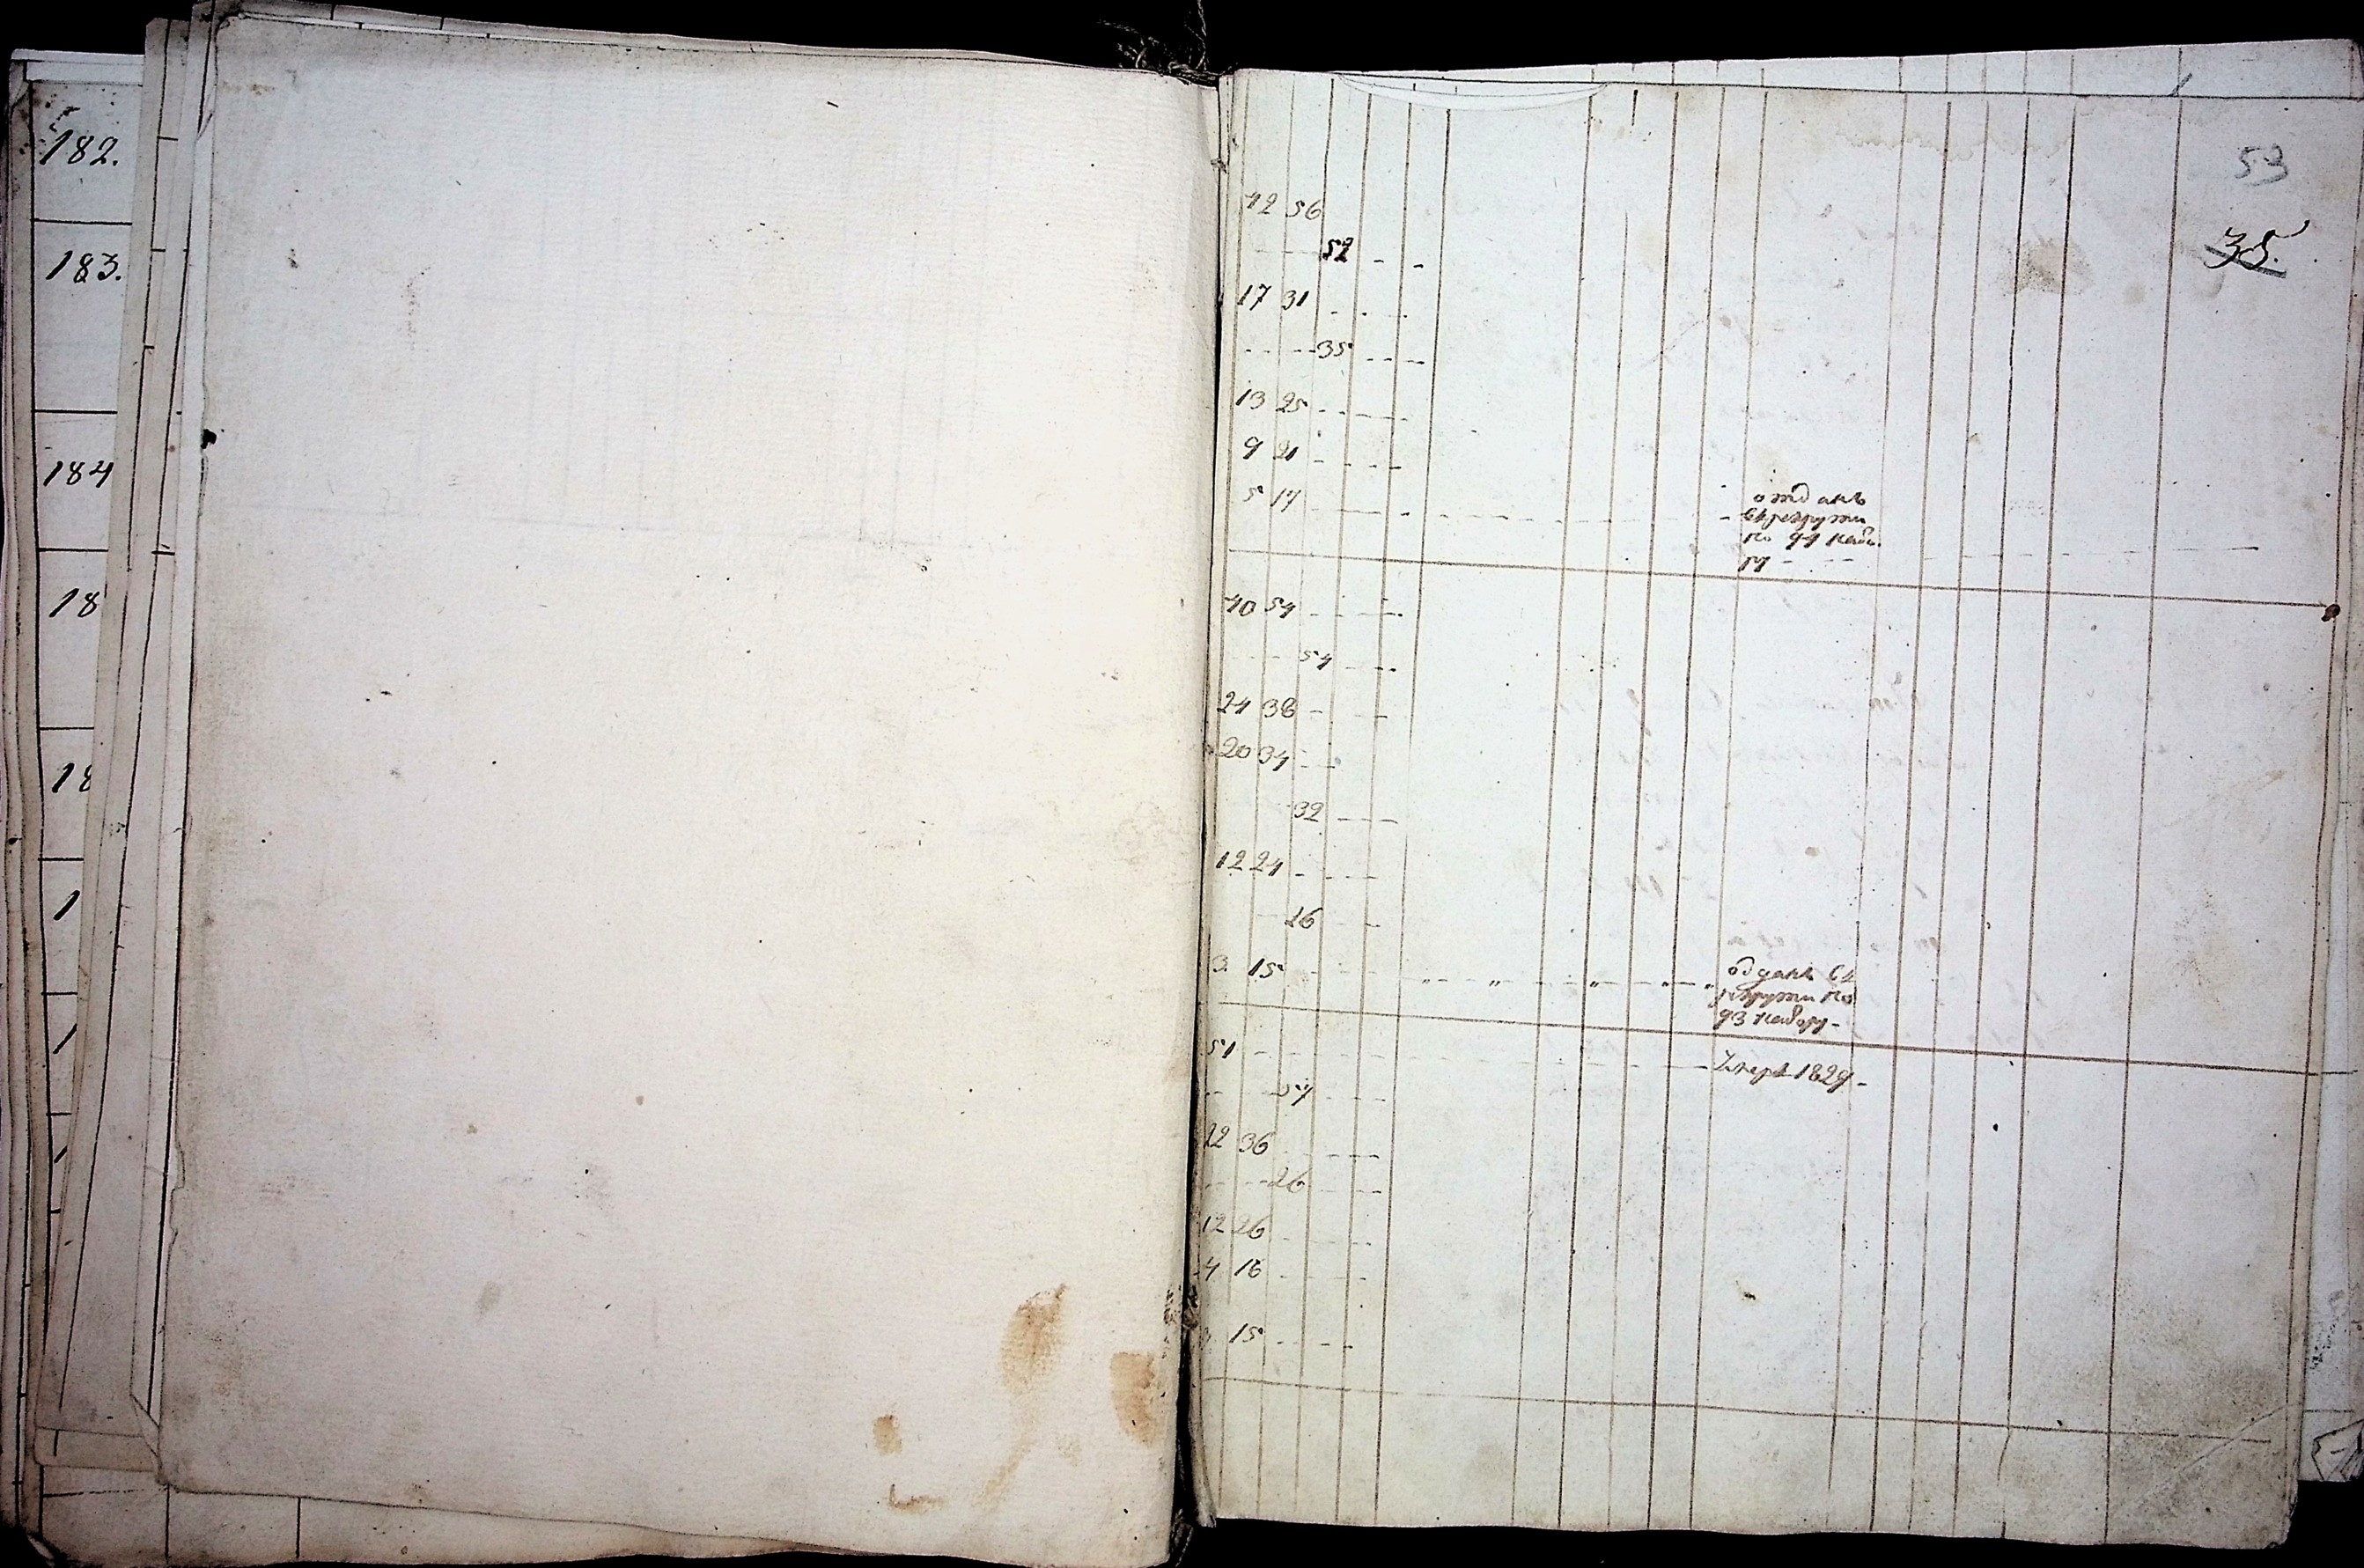 182.
183.
184
18
18
1
53
35.
42 56
52
17 31
35
13 25
9 21
5 17
отданъ
въ рекруты
по 94 набо.
ру
40 54
54
24 38
20 34
32
12 24
16
3 15
отданъ въ
рекруты по
93 набору
51
54
умеръ 1829
22 36
26
12 26
4 16
3 15